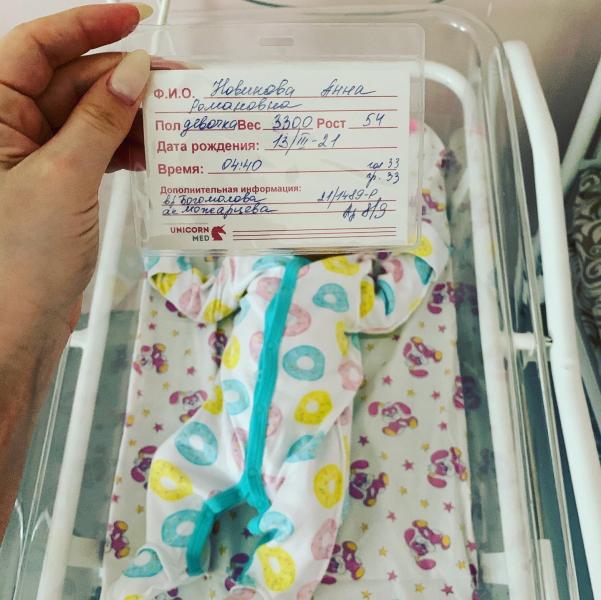 Ф.И.О. Новикова Анна
Романовна
Пол девочка Вес 3300 Рост 54
Дата рождения: 13/III-21
Время: 04:40 гол 33
гр. 33
Дополнительная информация:
вр Богомолова 21/1489-Р
ас Можарцева Ap 8/9
UNICORN
MED